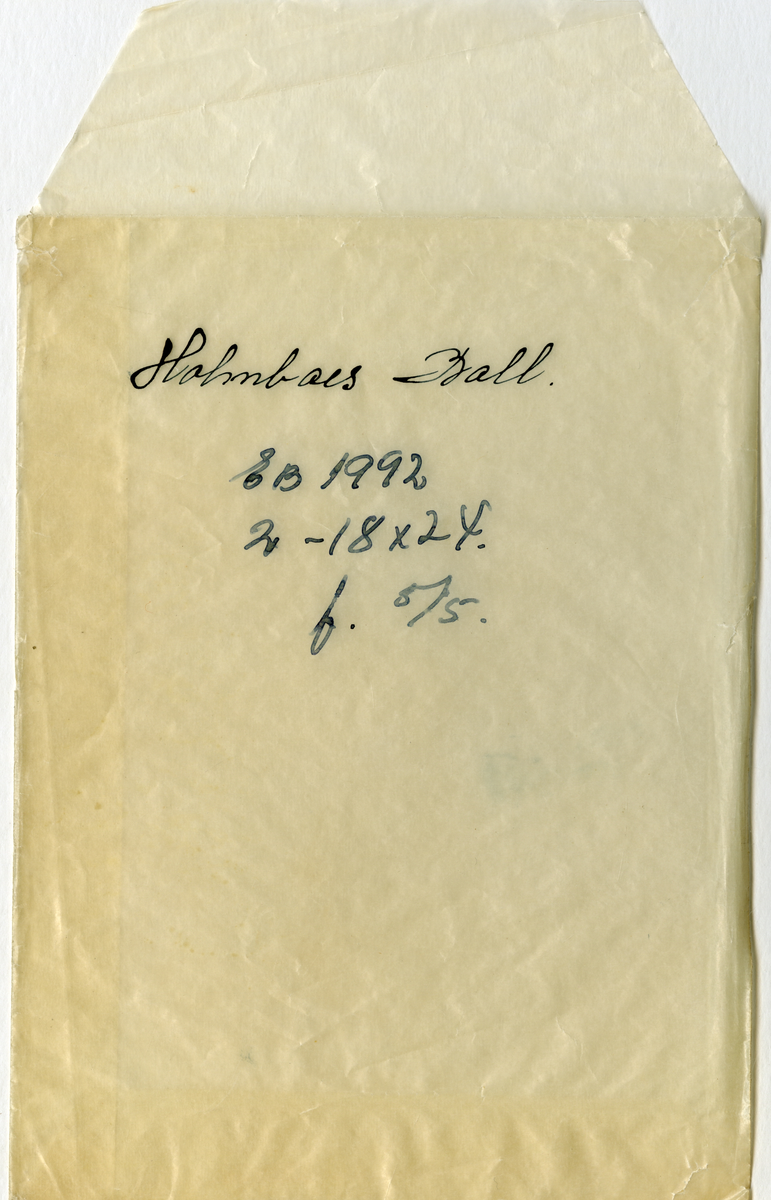 Holmboes Ball.
EB 1992
2 - 18 x 24.
f. 5/5.